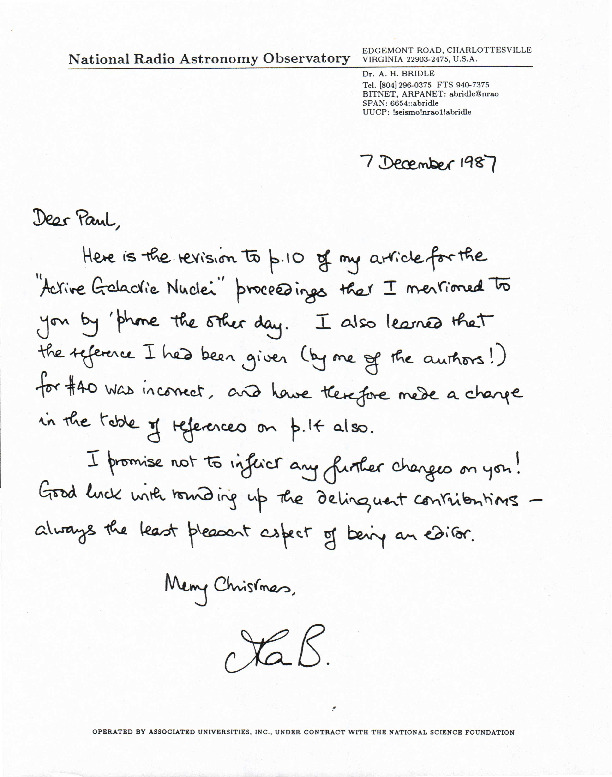 National Radio Astronomy Observatory
EDGEMONT ROAD, CHARLOTTESVILLE
VIRGINIA 22903-2475, U.S.A.
Dr. A. H. BRIDLE
Tel. [804] 296-0375 FTS 940-7375
BITNET, ARPANET: abridle@nrao
SPAN: 6654::abridle
UUCP: !seismo!nrao1!abridle
7 December 1987
Dear Paul,
Here is the revision to p.10 of my article for the
"Active Galactic Nuclei" proceedings that I mentioned to
you by 'phone the other day. I also learned that
the reference I had been given (by one of the authors!)
for #40 was incorrect, and have therefore made a change
in the table of references on p.14 also.
I promise not to inflict any further changes on you!
Good luck with rounding up the delinquent contributions –
always the least pleasant aspect of being an editor.
Merry Christmas,
B.
OPERATED BY ASSOCIATED UNIVERSITIES, INC., UNDER CONTRACT WITH THE NATIONAL SCIENCE FOUNDATION